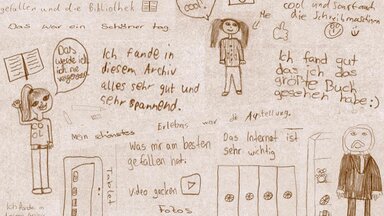 gefallen und die Bibliothek
cool!
cool und
die Schreibmaschinen
Das war ein Schöner tag
Me
Das werde ich nie vergessen
Ich fande in
diesem Archiv
alles sehr gut und
sehr spannend.
Ich fand gut
das ich das
größte Buch
gesehen habe :)
Mein schönstes Erlebnis war die Austellung.
Was mir am besten
gefallen hat:
Das Internet ist
sehr wichtig
Tablet
Video gucken
Fotos
Ich fande